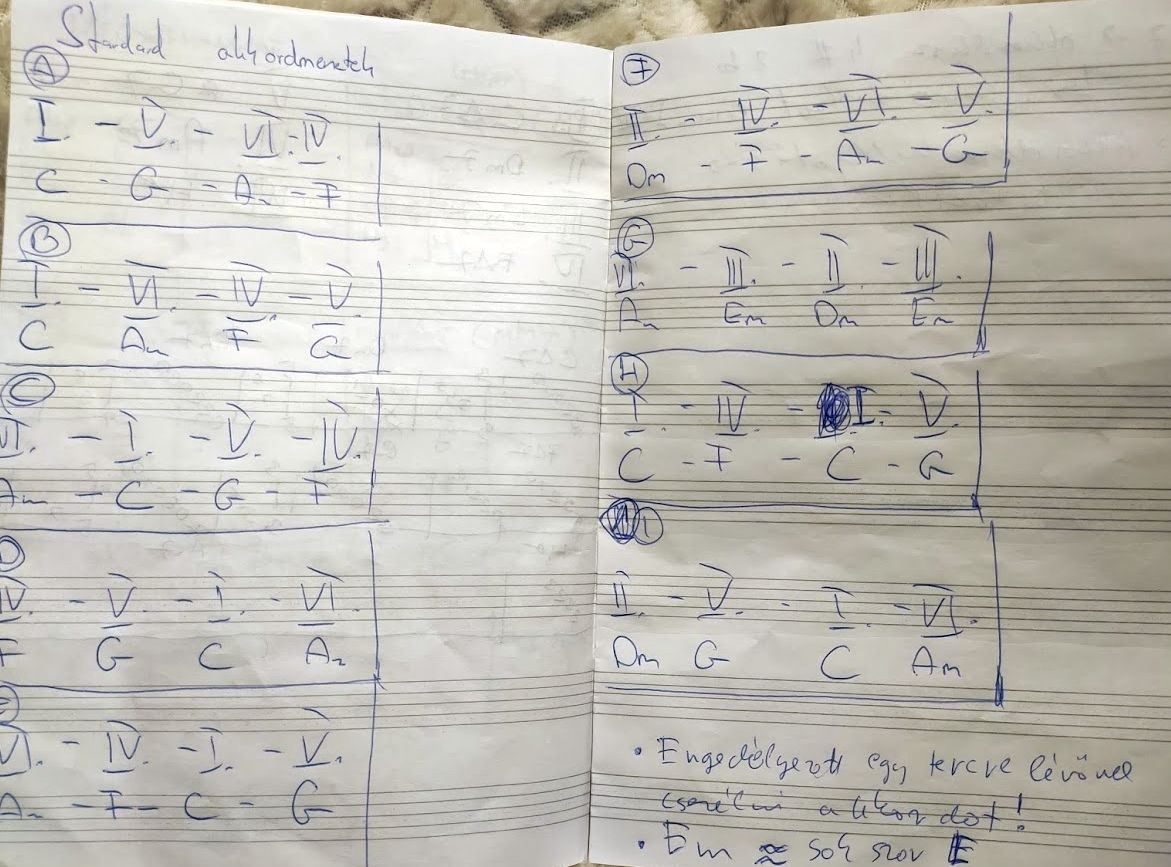 Standard akkordmenetek
A
I. - V. - VI. - IV.
C - G - Am - F
B
I. - VI. - IV - V
C Am F G
C
VI. - I. - V. - IV.
Am - C - G - F
D
IV. - V. - I. - VI.
F G C Am
E
VI. - IV. - I. - V.
Am - F - C - G
F
II. - IV. - VI. - V.
Dm - F - Am - G
G
VI. - III. - II - III.
Am Em Dm Em
H
I. - IV. - I. - V.
C - F - C - G
I
II. - V. - I. - VI.
Dm G C Am
• Engedélyezett egy tercre lévővel
cserélni akkordot!
• Em ≈ sok szor E